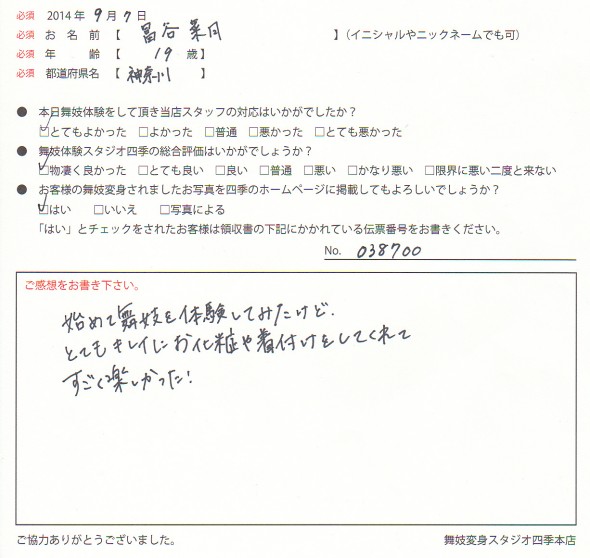 必須 2014 年 9 月 7 日
必須 お 名 前 【 冨谷 菜月 】（イニシャルやニックネームでも可）
必須 年 齢 【 19 歳】
必須 都道府県名 【 神奈川 】
● 本日舞妓体験をして頂き当店スタッフの対応はいかがでしたか？
□とてもよかった □よかった □普通 □悪かった □とても悪かった
● 舞妓体験スタジオ四季の総合評価はいかがでしょうか？
□物凄く良かった □とても良い □良い □普通 □悪い □かなり悪い □限界に悪い二度と来ない
● お客様の舞妓変身されましたお写真を四季のホームページに掲載してもよろしいでしょうか？
□はい □いいえ □写真による
「はい」とチェックをされたお客様は領収書の下記にかかれている伝票番号をお書きください。
No. 038700
ご感想をお書き下さい。
始めて舞妓を体験してみたけど、
とてもキレイにお化粧や着付けをしてくれて
すごく楽しかった！
ご協力ありがとうございました。
舞妓変身スタジオ四季本店